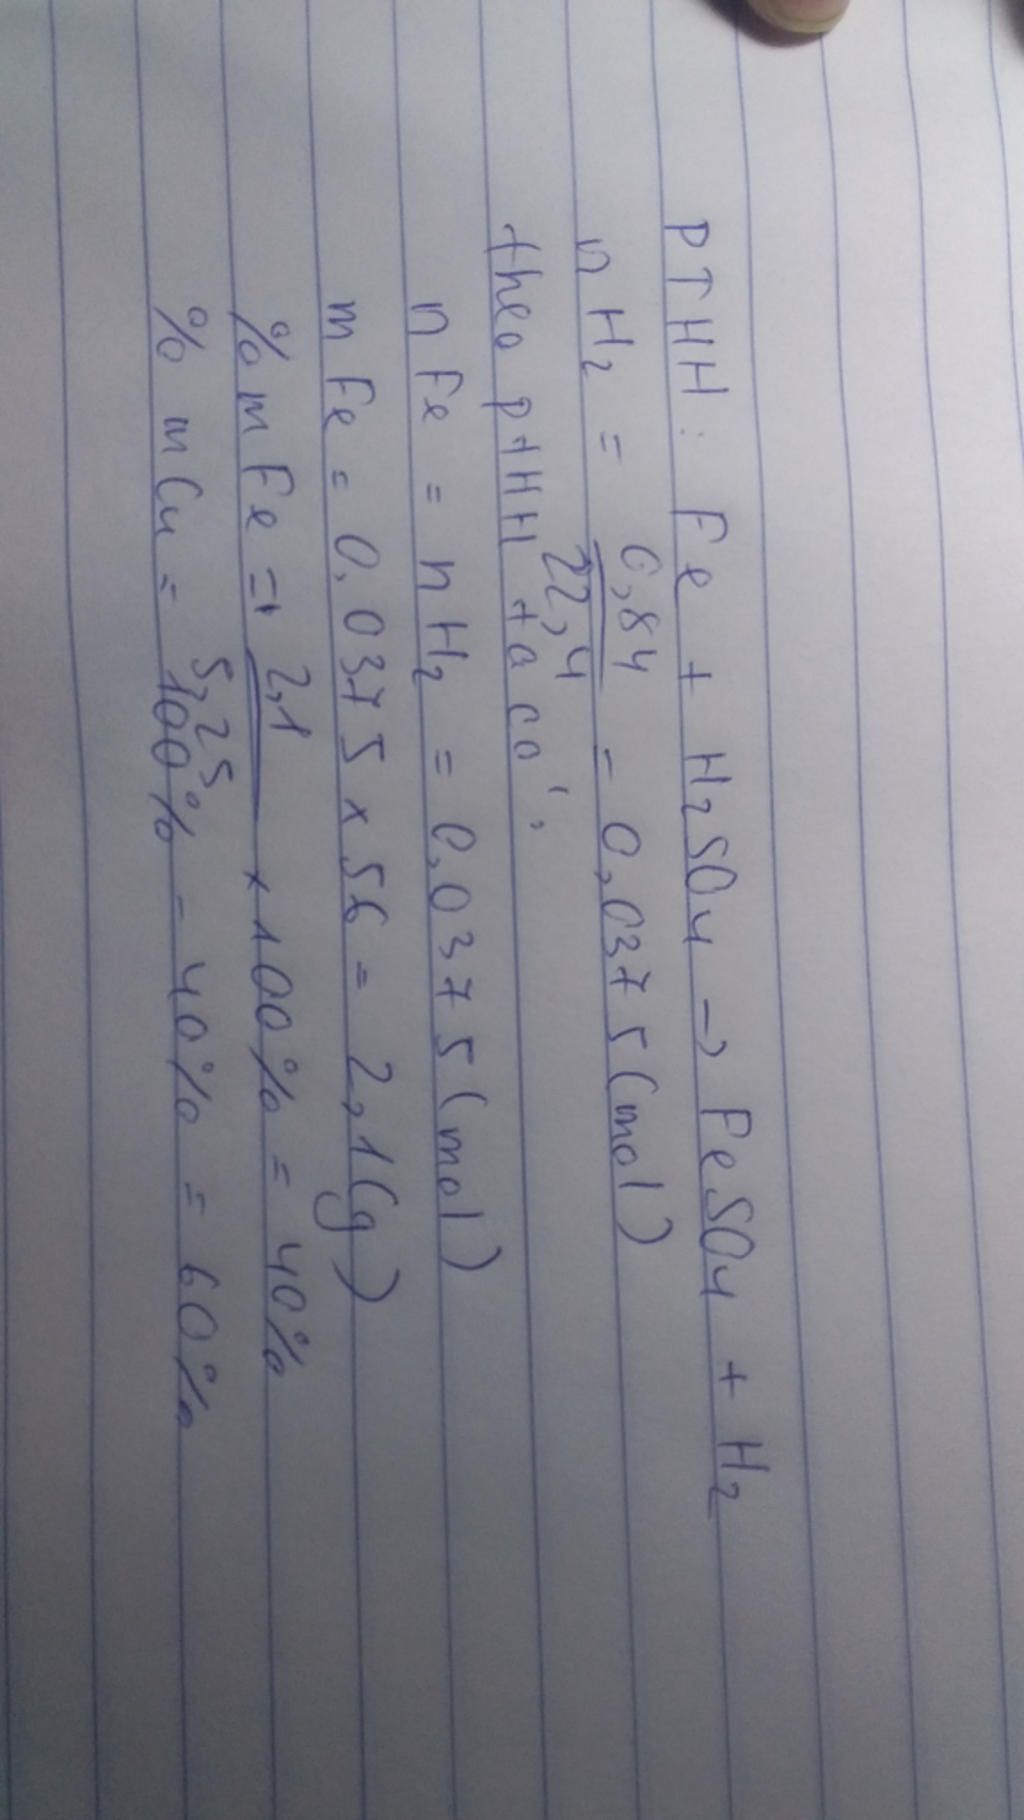 PTHH: Fe + H2SO4 → FeSO4 + H2
nH2 = 0,84/22,4 = 0,0375 (mol)
theo ptHH ta có:
nFe = nH2 = 0,0375 (mol)
mFe = 0,0375 x 56 = 2,1 (g)
% mFe = 2,1/5,25 x 100% = 40%
% mCu = 100% - 40% = 60%